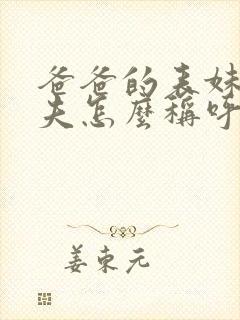 爸爸的表妹
夫怎麼稱呼
姜東元